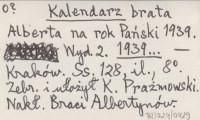 o?
Kalendarz brata
Alberta na rok Pański 1939.
Wyd. 2. 1939...—
Kraków. Ss. 128, il., 8°.
Zebr. i ułożył K. Prażmowski.
Nakł. Braci Albertynów.